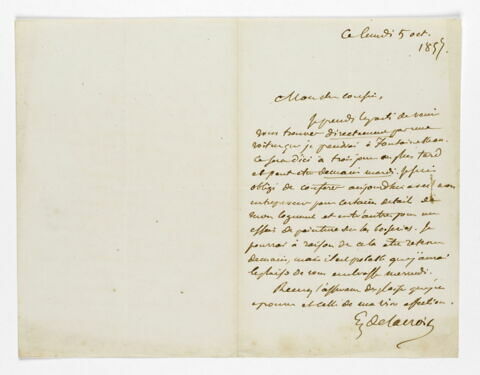 Ce lundi 5 oct.
1857.
Mon cher cousin,
Je prends le parti de venir
vous trouver directement par une
voiture que je prendrai à Fontainebleau.
Ce sera d'ici à trois jours au plus tard
et peut être demain mardi. Je suis
obligé de conférer aujourd'hui avec mon
entrepreneur pour certains détails de
mon logement et entr'autres pour un
essai de peinture sur les boiseries. Je
pourrai à raison de cela être retenu
demain, mais il est probable que j'aurai
le plaisir de vous embrasser mercredi.
Recevez l'assurance du plaisir que j'en
éprouve et celle de ma vive affection.
Eug Delacroix